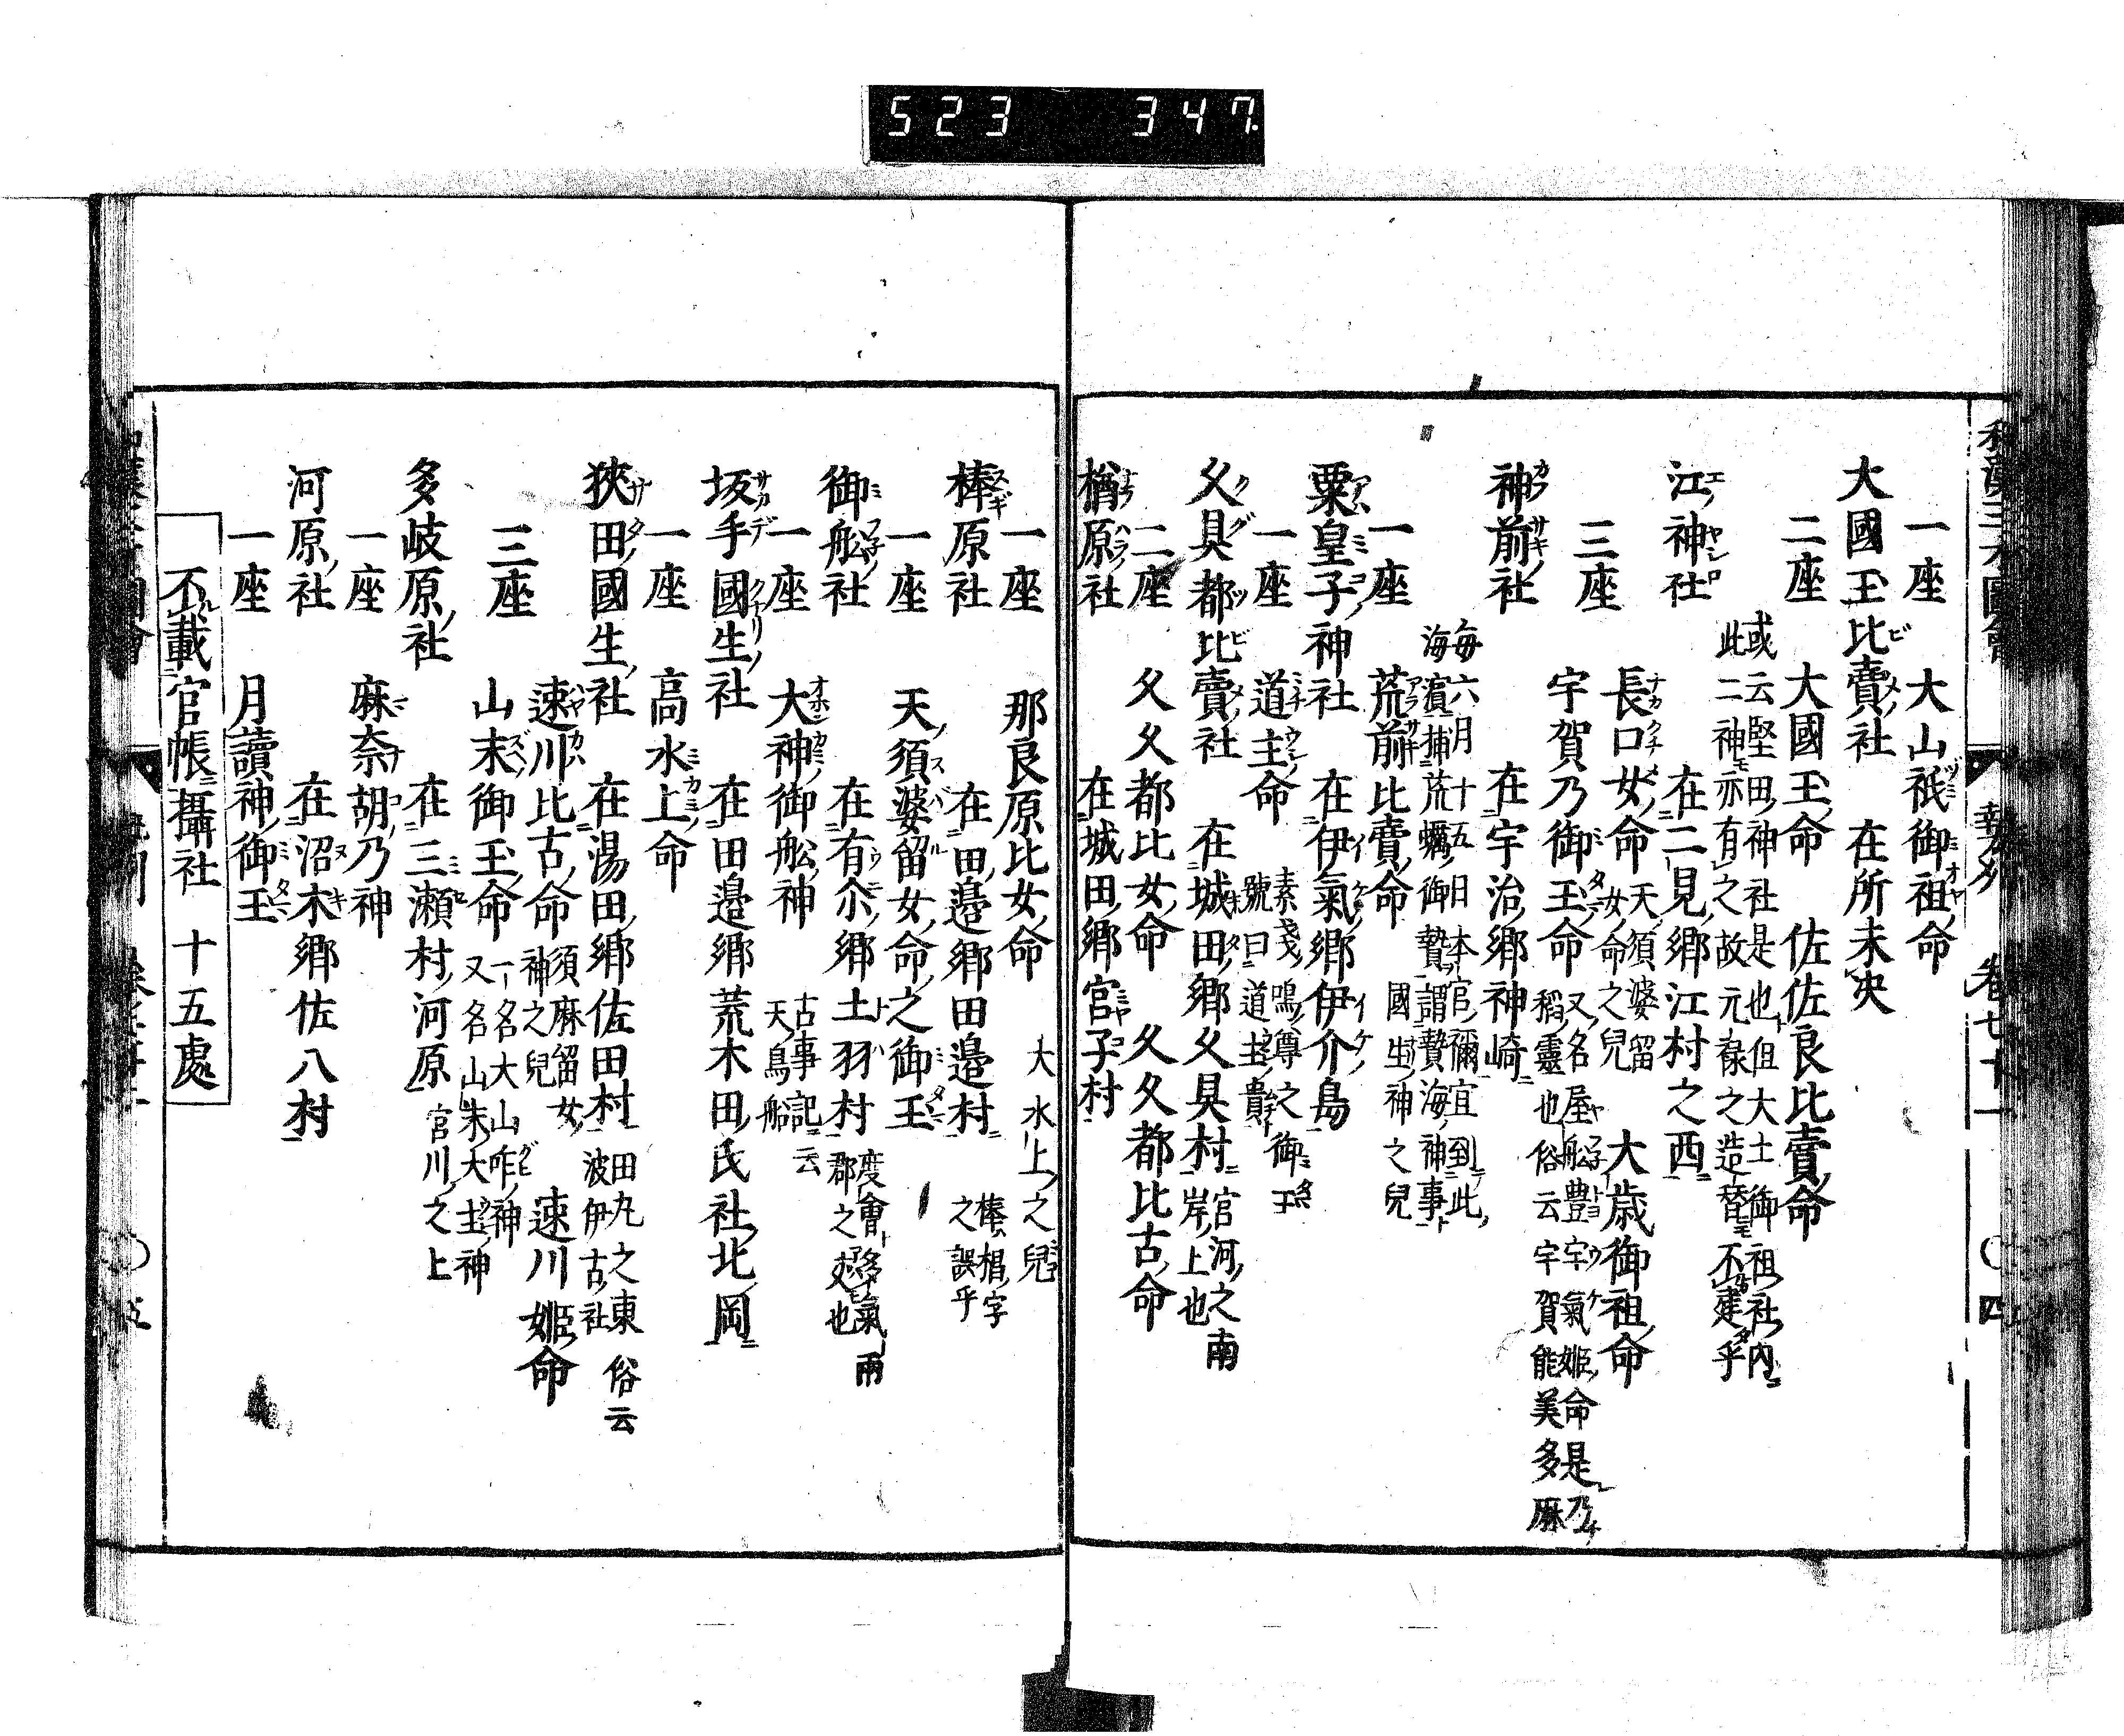 523 347.
一座 大山祇御祖命
大國玉比賣社 在所未决
二座 大國玉命 佐佐良比賣命
或云堅田神社是也但大土御祖社內
此二神亦有之故元祿之造替不建乎
江神社 在二見鄉江村之西
三座 長口女命 天須婆留女命之兒 大歲御祖命
宇賀乃御玉命 又名屋船豊宇氣姬命是乃
稻靈也俗云宇賀能美多麻
神前社 在宇治鄉神崎
每六月十五日本宮禰宜到此
海濱捕荒蠣御贄謂贄海神事
一座 荒前比賣命 國生神之兒
粟皇子神社 在伊氣鄉伊介島
一座 道主命 素戔嗚尊之御玉
號曰道主貴
久具都比賣社 在城田鄉久具村 宮河之南
岸上也
二座 久久都比女命 久久都比古命
楢原社 在城田鄉宮子村
一座 那良原比女命 大水上之兒
棒原社 在田邉鄉田邉村 棒椙字
之誤乎
一座 天須婆留女命之御玉
御舩社 在有尒鄉土羽村 度會多氣兩
郡之交也
一座 大神御舩神 古事記云
天鳥船
坂手國生社 在田邉鄉荒木田氏社北岡
一座 高水上命
狹田國生社 在湯田鄉佐田村 田丸之東 俗云
波伊古社
三座 速川比古命 須麻留女
神之兒 速川姬命
山末御玉命 一名大山咋神
又名山末大主神
多岐原社 在三瀨村河原 宮川之上
一座 麻奈胡乃神
河原社 在沼木鄉佐八村
一座 月讀神御玉
不載官帳攝社 十五處